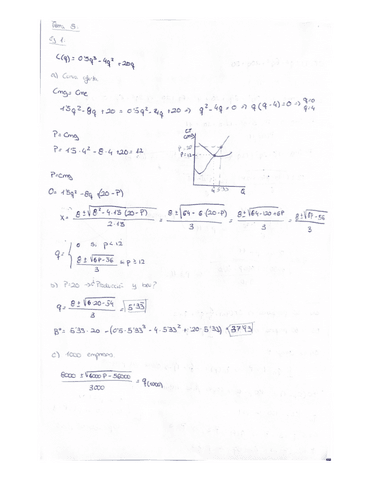 Tema 3.
Ej 1.
C(q) = 0'5q³ - 4q² + 20q
a) Curva oferta
Cmg = Cme
1'5q² - 8q + 20 = 0'5q² - 4q + 20 → q² - 4q = 0 → q(q-4) = 0 → q=0
q=4
P = Cmg
P = 1'5 · 4² - 8 · 4 + 20 = 12
Q
P = Cmg
0 = 1'5q² - 8q + (20 - P)
x = 8 ± √8² - 4 · 1'5 (20 - P) / 2 · 1'5 = 8 ± √64 - 6 (20 - P) / 3 = 8 ± √64 - 120 + 6P / 3 = 8 ± √6P - 56 / 3
q = { 0 si p < 12
8 ± √6P - 56 / 3 si p ≥ 12
b) P=20 → ¿Producción y ?
q = 8 ± √6 · 20 - 54 / 3 = 5'33
Bº = 5'33 · 20 - (0'5 · 5'33³ - 4 · 5'33² + 20 · 5'33) = 37'93
c) 1000 empresas
8000 ± √6000 P - 56000 / 3000 = q (1000)